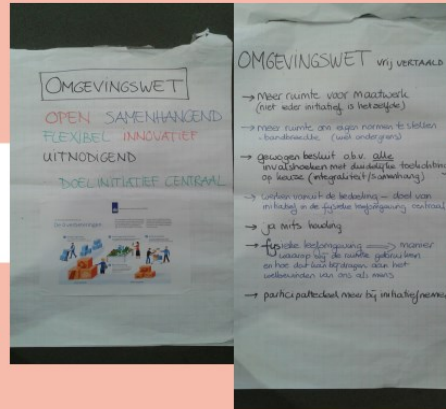 OMGEVINGSWET
OPEN SAMENHANGEND
FLEXIBEL INNOVATIEF
UITNODIGEND
DOEL INITIATIEF CENTRAAL
OMGEVINGSWET vrij VERTAALD
→ Meer ruimte voor maatwerk
(niet ieder initiatief is hetzelfde)
→ meer ruimte om eigen normen te stellen
- bandbreedte (wel ondergrens)
→ gewogen besluit o.b.v. alle
invalshoeken met duidelijke toelichting
op keuze (integraliteit/samenhang)
→ werken vanuit de bedoeling - doel van
initiatief in de fysieke leefomgeving centraal
→ ja mits houding
→ fysieke leefomgeving ⟹ manier
waarop wij de ruimte gebruiken
en hoe dat kan bijdragen aan het
welbevinden van ons als mens
→ participatie meer bij initiatief